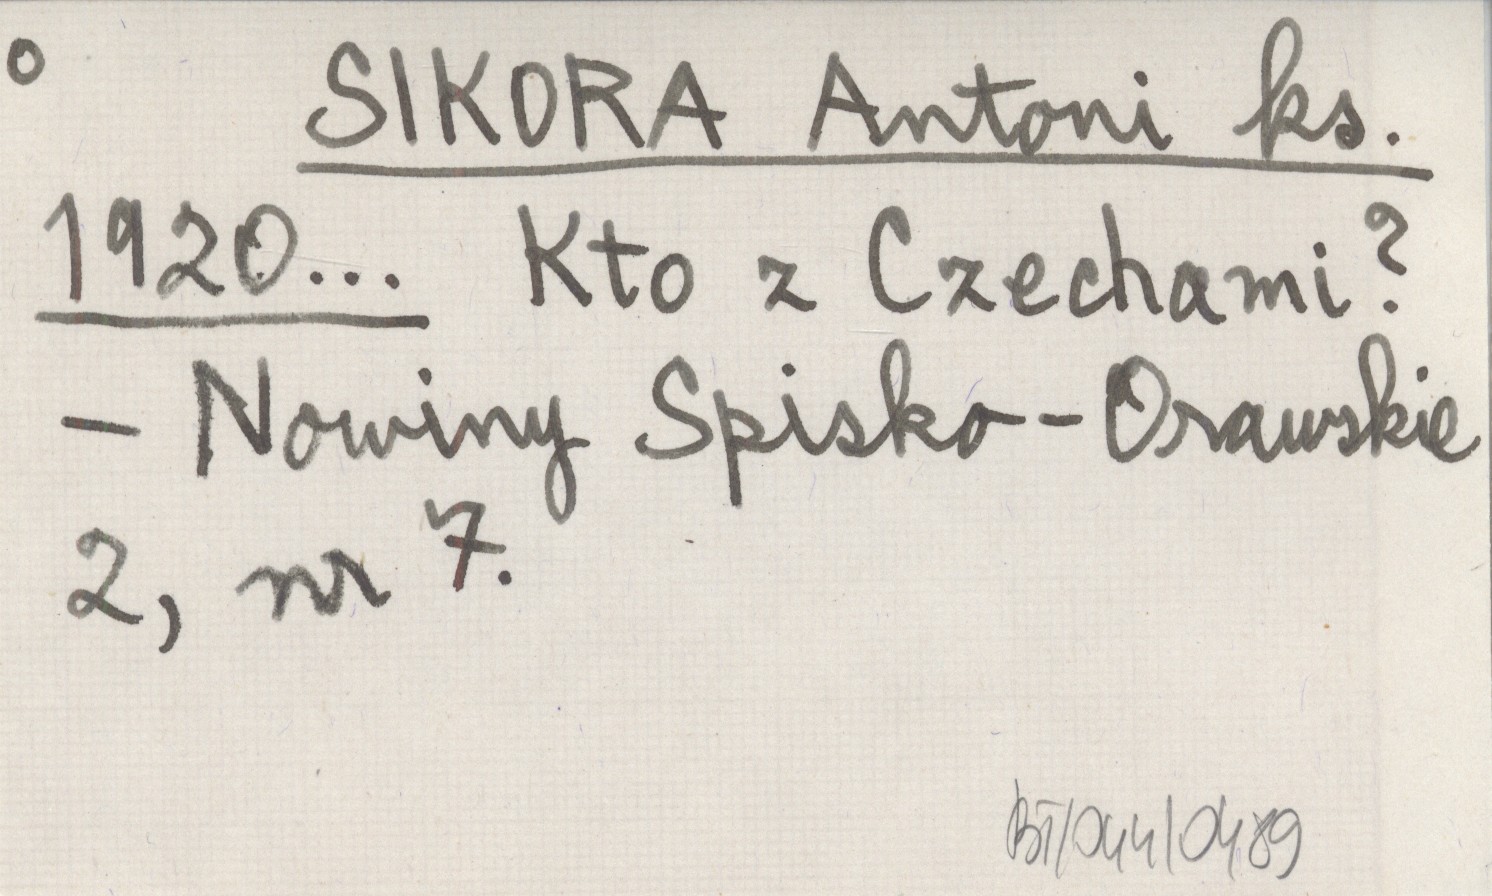 o SIKORA Antoni ks.
1920... Kto z Czechami?
- Nowiny Spisko-Orawskie
2, nr 7.
BT/044/0489